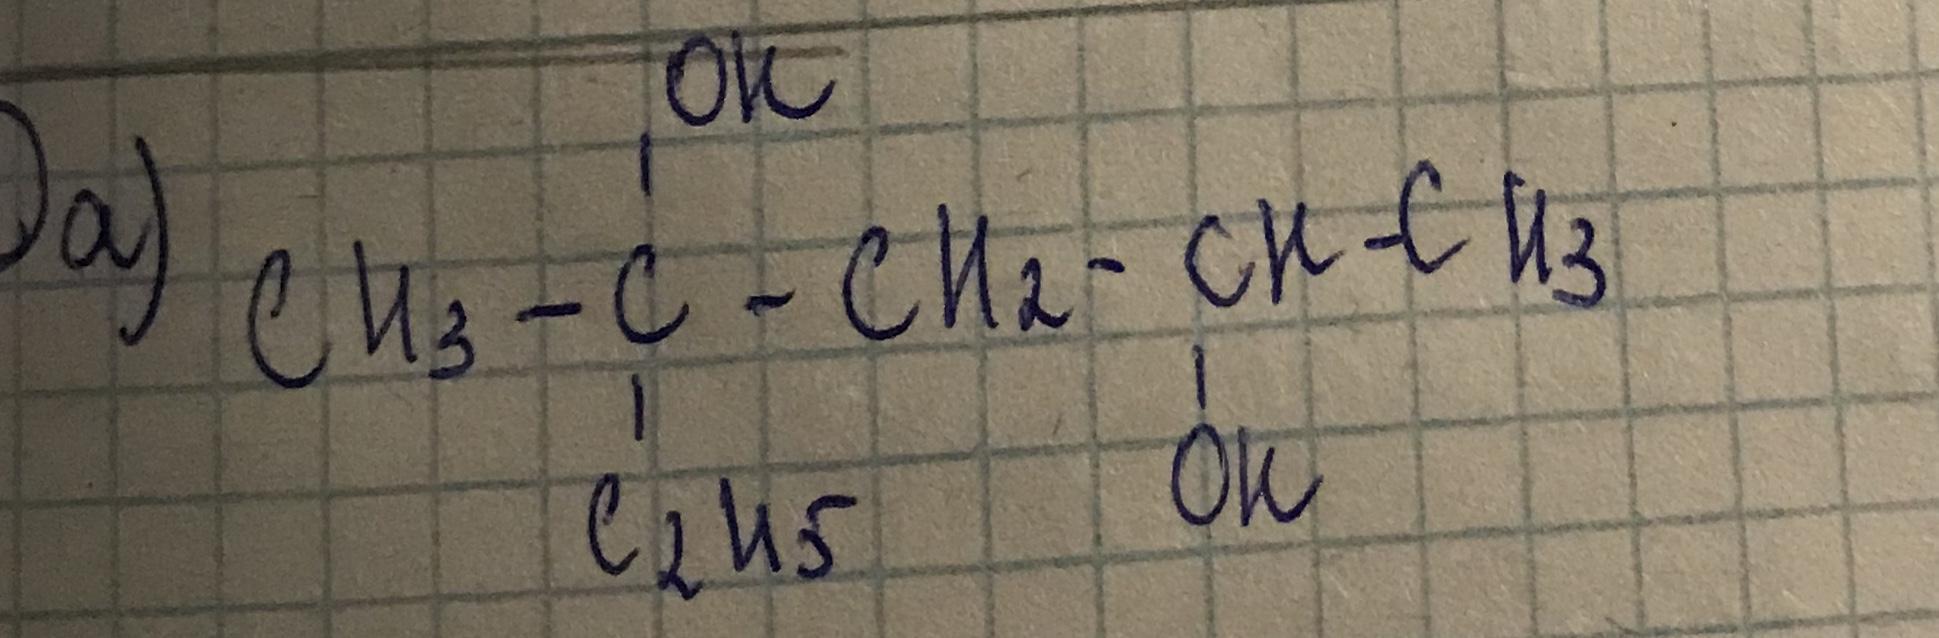 OH
а) CH3 - C - CH2 - CH - CH3
C2H5 OH